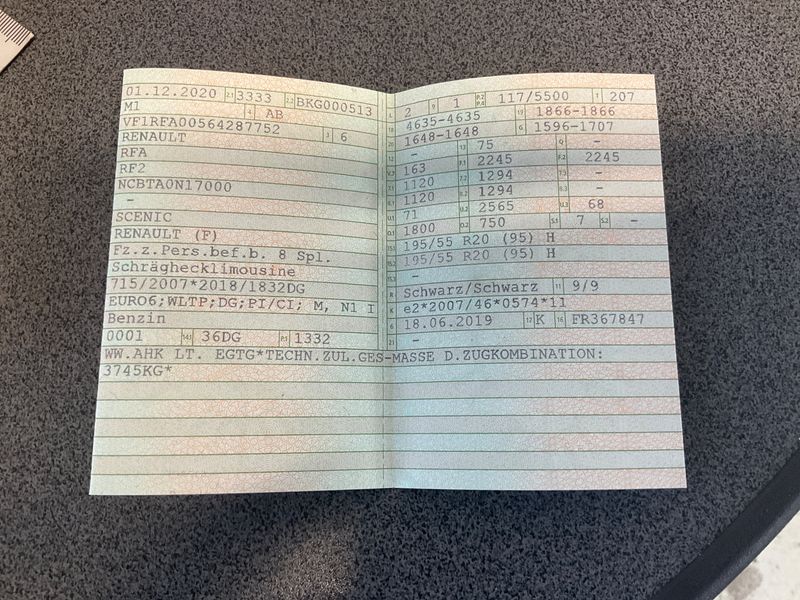 01.12.2020 2.1 3333 2.2 BKG000513
M1 4 AB
VF1RFA00564287752 3 6
RENAULT
RFA
RF2
NCBTA0N17000
-
SCENIC
RENAULT (F)
Fz.z.Pers.bef.b. 8 Spl.
Schräghecklimousine
715/2007*2018/1832DG
EURO6;WLTP;DG;PI/CI; M, N1 I
Benzin
0001 14.1 36DG P.1 1332
L 2 9 1 P.2 P.4 117/5500 T 207
18 4635-4635 19 1866-1866
20 1648-1648 G 1596-1707
12 - 13 75 Q -
V.7 163 F.1 2245 F.2 2245
7.1 1120 7.2 1294 7.3 -
8.1 1120 8.2 1294 8.3 -
U.1 71 U.2 2565 U.3 68
O.1 1800 O.2 750 S.1 7 S.2 -
15.1 195/55 R20 (95) H
15.2 195/55 R20 (95) H
15.3 -
R Schwarz/Schwarz 11 9/9
K e2*2007/46*0574*11
6 18.06.2019 17 K 16 FR367847
21 -
WW.AHK LT. EGTG*TECHN.ZUL.GES-MASSE D.ZUGKOMBINATION:
3745KG*